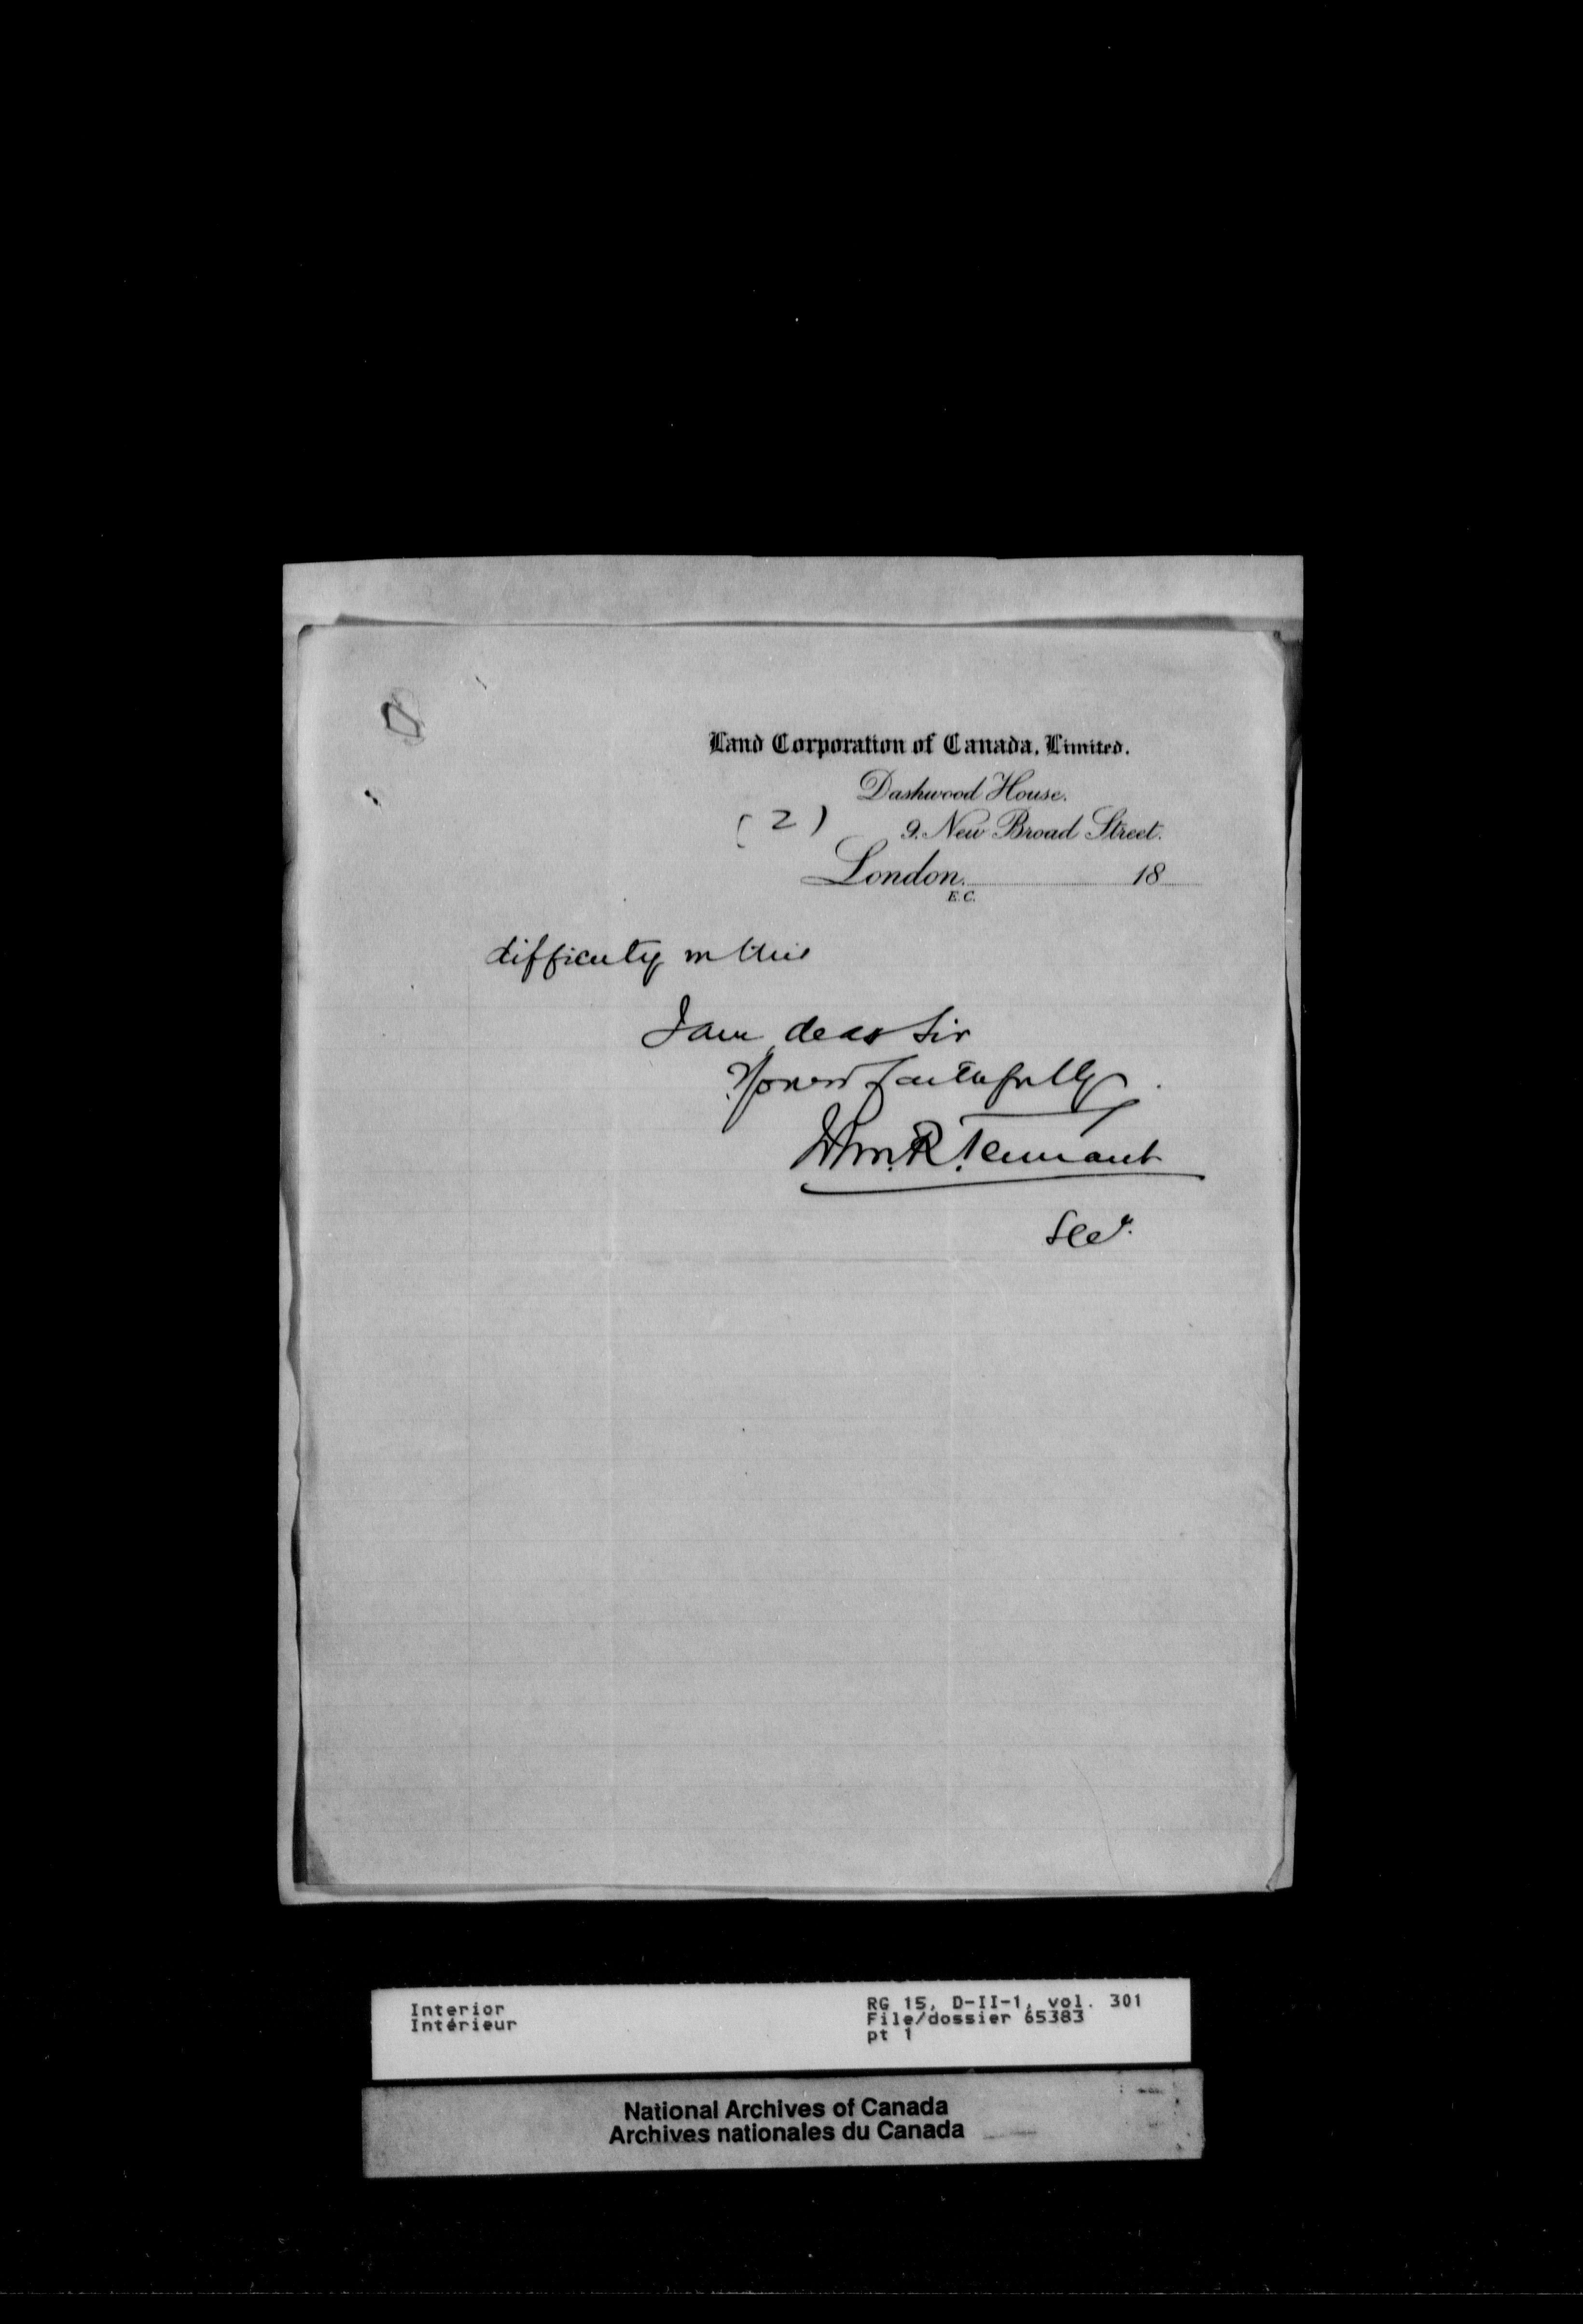 Land Corporation of Canada, Limited.
Dashwood House.
(2) 9. New Broad Street.
London. 18
E.C.
difficulty in this
I am dear Sir
Yours faithfully
Wm. R. Tennant
Secy.
Interior
Intérieur
RG 15, D-II-1, vol. 301
File/dossier 65383
pt 1
National Archives of Canada
Archives nationales du Canada